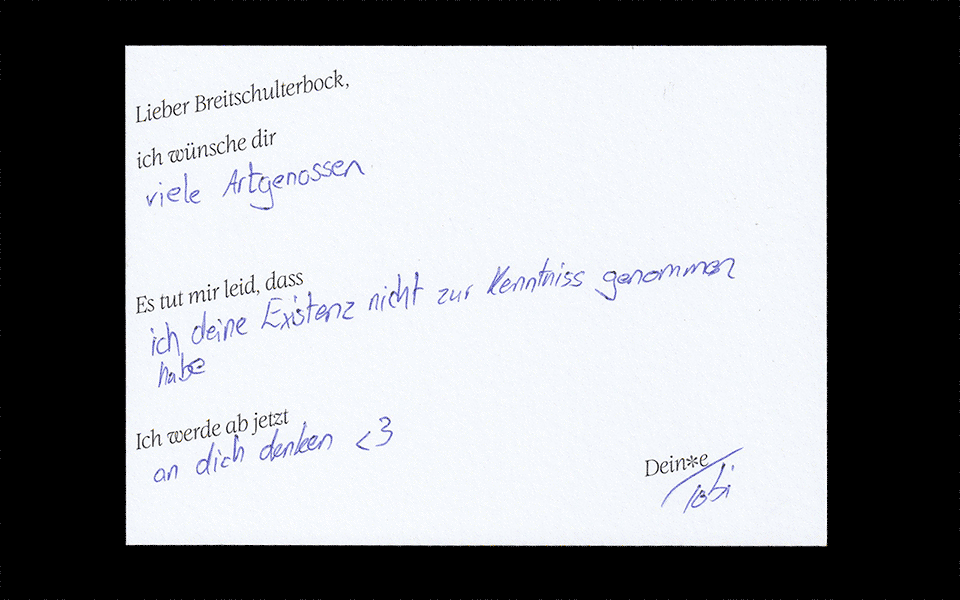 Lieber Breitschulterbock,
ich wünsche dir
viele Artgenossen
Es tut mir leid, dass
ich deine Existenz nicht zur Kenntniss genommen
habe
Ich werde ab jetzt
an dich denken <3
Dein*e
Tobi